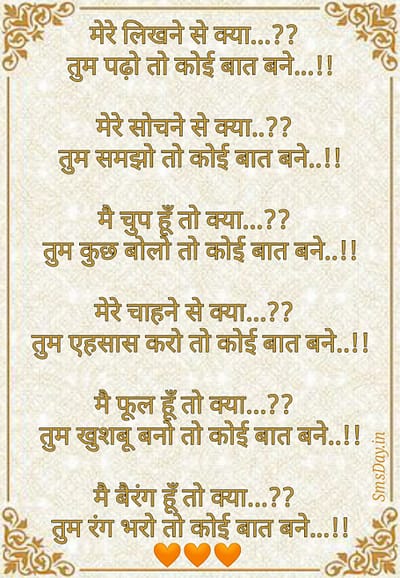 मेरे लिखने से क्या...??
तुम पढ़ो तो कोई बात बने...!!
मेरे सोचने से क्या..??
तुम समझो तो कोई बात बने..!!
मै चुप हूँ तो क्या...??
तुम कुछ बोलो तो कोई बात बने..!!
मेरे चाहने से क्या...??
तुम एहसास करो तो कोई बात बने..!!
मै फूल हूँ तो क्या...??
तुम खुशबू बनो तो कोई बात बने..!!
मै बैरंग हूँ तो क्या...??
तुम रंग भरो तो कोई बात बने...!!
🧡🧡🧡
SmsDay.in